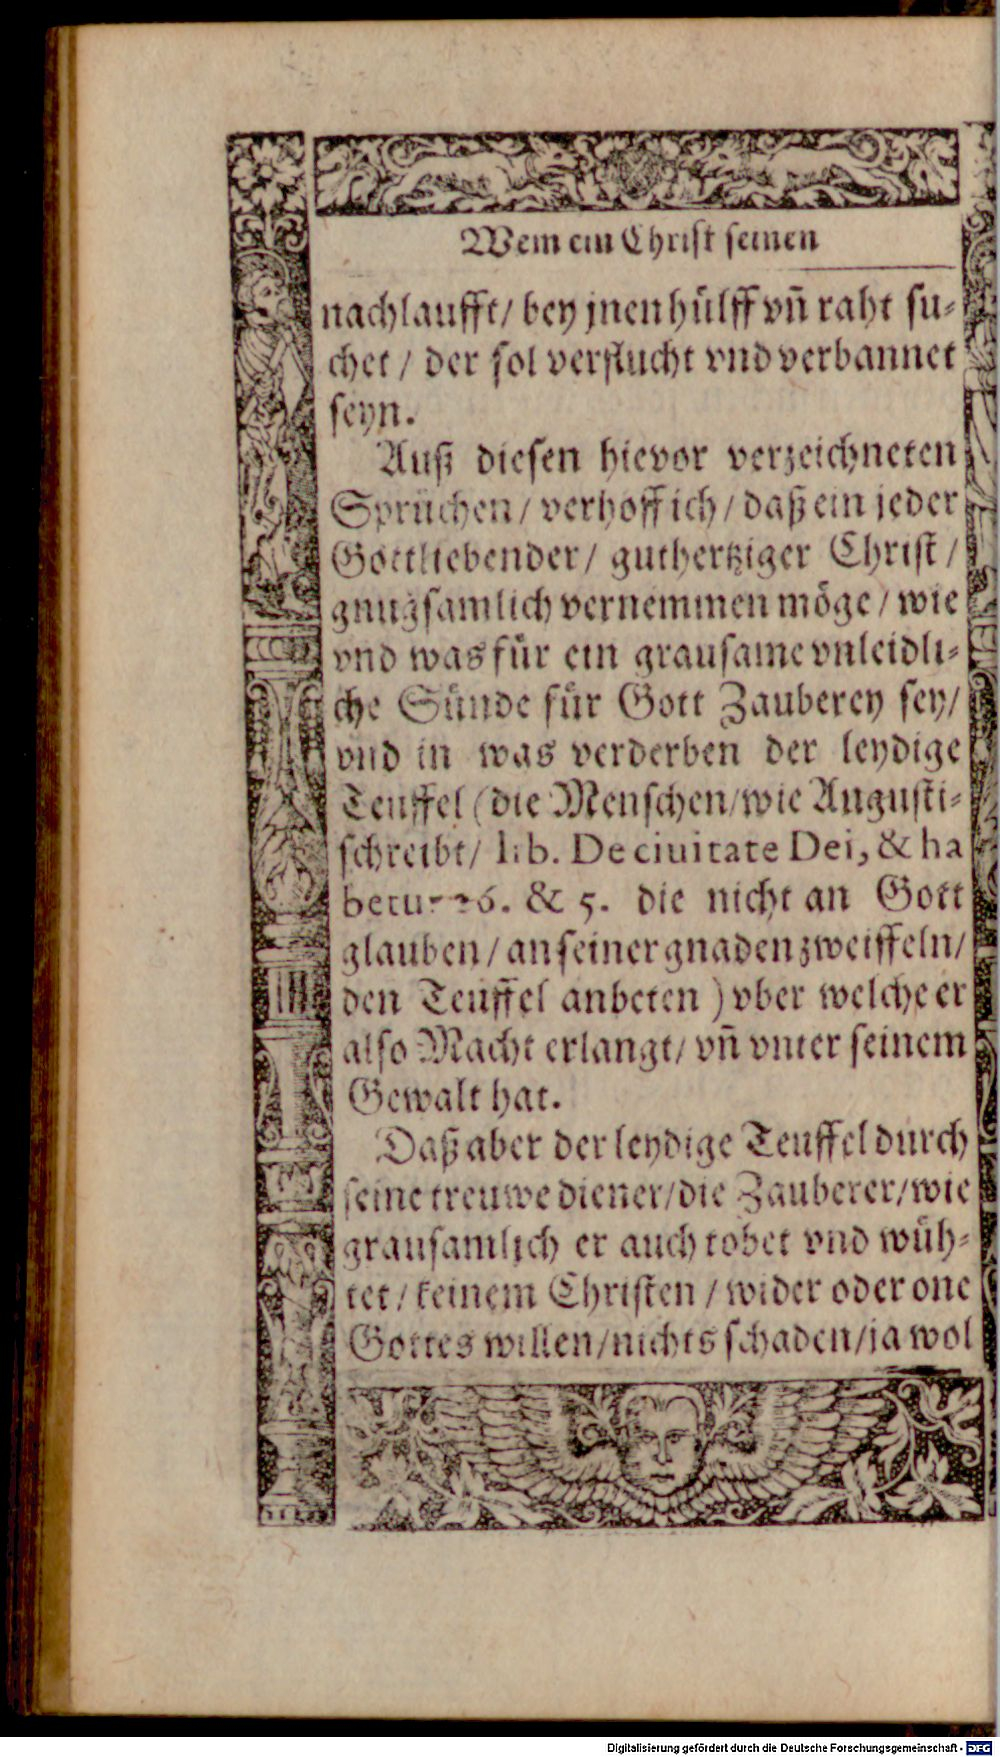 Wem ein Christ seinen
nachlaufft/ bey jnen hülff vñ raht su-
chet / der sol verflucht vnd verbannet
seyn.
Auß diesen hievor verzeichneten
Sprüchen/ verhoff ich/ daß ein jeder
Gottliebender/ guthertziger Christ/
gnugsamlich vernemmen möge/ wie
vnd was für ein grausame vnleidli-
che Sünde für Gott Zauberey sey/
vnd in was verderben der leydige
Teuffel (die Menschen/wie Augusti-
schreibt/ lib. De ciuitate Dei, & ha
betur 26. & 5. die nicht an Gott
glauben/ an seiner gnaden zweiffeln/
den Teuffel anbeten ) vber welche er
also Macht erlangt/ vñ vnter seinem
Gewalt hat.
Daß aber der leydige Teuffel durch
seine treuwe diener/die Zauberer/wie
grausamlich er auch tobet vnd wüh-
tet/ keinem Christen / wider oder one
Gottes willen/nichts schaden/ja wol
Digitalisierung gefördert durch die Deutsche Forschungsgemeinschaft - DFG